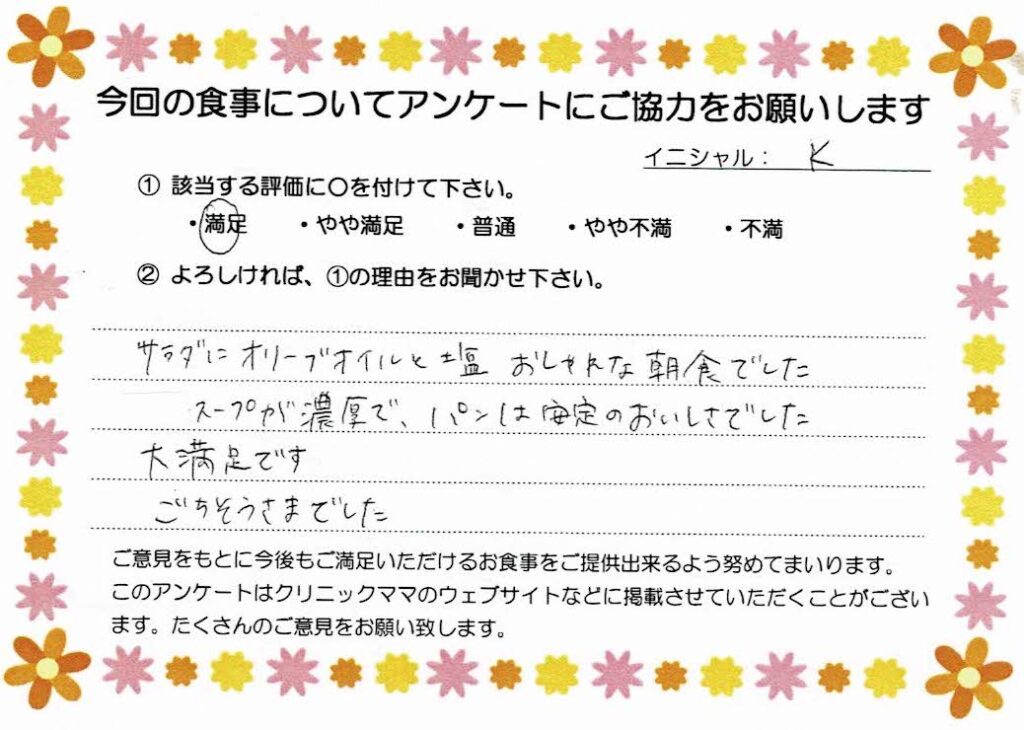 今回の食事についてアンケートにご協力をお願いします
イニシャル： K
① 該当する評価に〇を付けて下さい。
・満足 ・やや満足 ・普通 ・やや不満 ・不満
② よろしければ、①の理由をお聞かせ下さい。
サラダにオリーブオイルと塩 おしゃれな朝食でした
スープが濃厚で、パンは安定のおいしさでした
大満足です
ごちそうさまでした
ご意見をもとに今後もご満足いただけるお食事をご提供出来るよう努めてまいります。
このアンケートはクリニックママのウェブサイトなどに掲載させていただくことがござい
ます。たくさんのご意見をお願い致します。